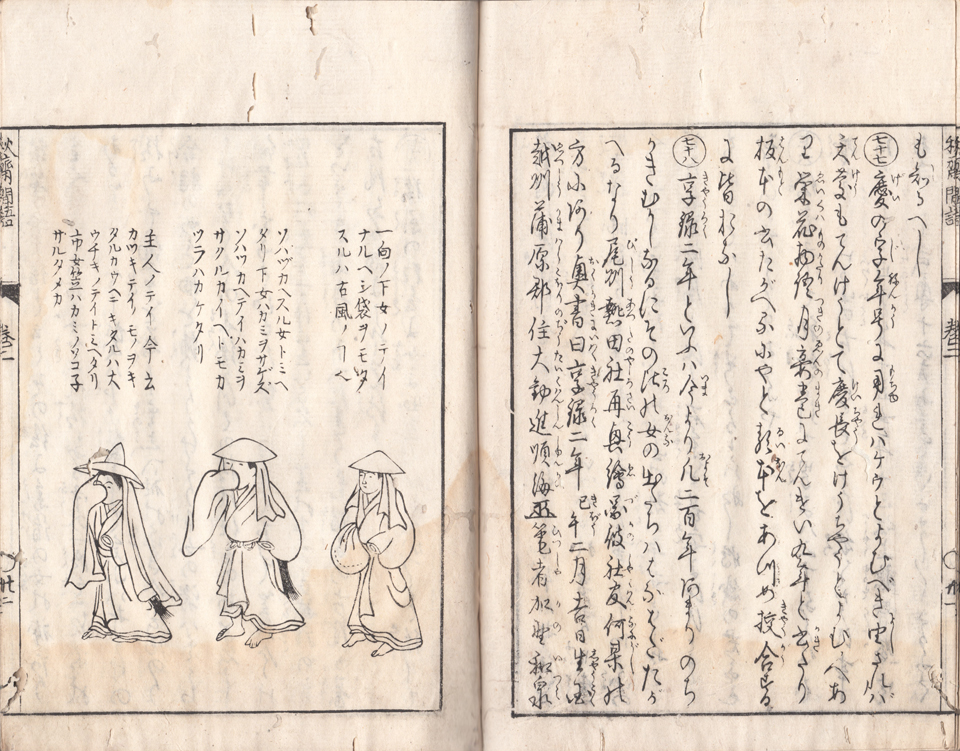 も知るへし
七十七 慶の字年号に用ればケウとよむべき中されば
天慶もてんけうとて慶長をけうちやうともよむべあ
り栄花物語月宴巻にてんけい九年と書たり
板本の書たがへるにやと類本をあつめ校合する
に皆おなし
七十八 享禄二年といふハ今より凡二百年あまりのち
かきむかしなるにその比の女の出たちハはなはだたか
へるなり尾州熱田社再興繪図彼社友何某の
方にあり奥書曰享禄二年 己 二月吉日生国
越州蒲原郡住大勧進順海 筆者加 和泉
一向ノ下女ノテイ
ナルヘシ袋ヲモツタ
スルハ古風ノ
ソハツカヘスル女トミヘ
タリ下女ハカミヲサゲズ
ソハツカヘテイハカミヲ
サクルカイヘトモカ
ツラハカケタリ
主人ノテイ今云
カツキテイノモノヲキ
タルカウヘニキタルハ大
ウチキノテイトミヘタリ
市女笠ハカミノツコ子
サルタメカ
秋齋間語
巻二
廿二